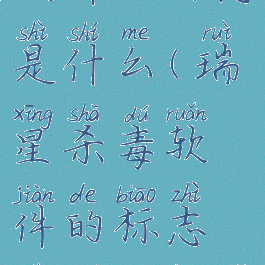 shì shí me ruì
是什么(瑞
xīng shā dú ruǎn
星杀毒软
jiàn de biāo zhì
件的标志